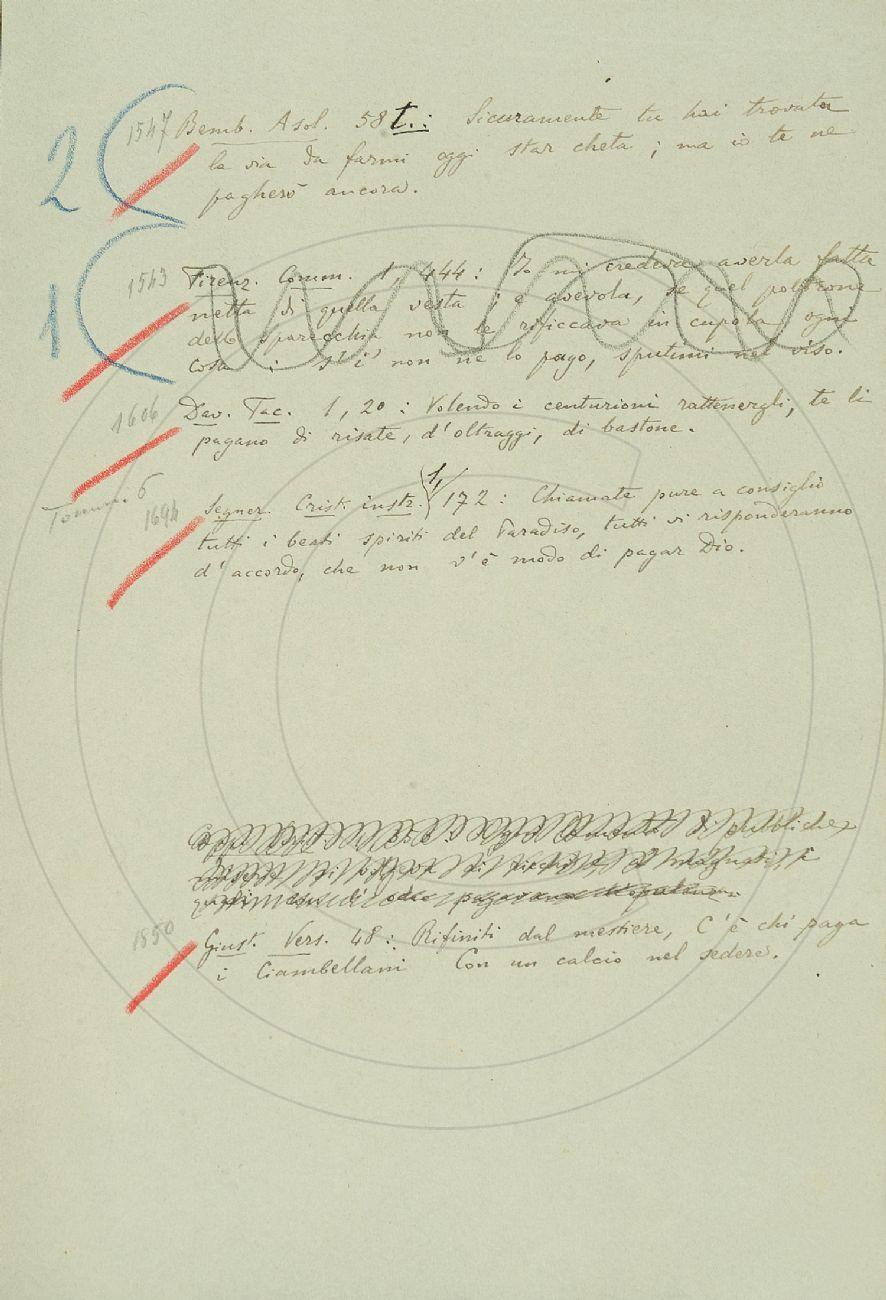 2 1547 Bemb. Asol. 58t.: Sicuramente tu hai trovata
la via da farmi oggi star cheta; ma io te ne
pagherò ancora.
1 1543 Firenz. Comm. 1, 444: Io mi credeva averla fatta
netta di quella vesta; e avevola, se quel poltrone
dello sparecchia non le rificcava in cupola ogni
cosa: s'i' non ne lo pago, sputimi nel viso.
1606 Dav. Tac. 1, 20: Volendo i centurioni rattenergli, te li
pagano di risate, d'oltraggi, di bastone.
Tommi 6
1694 Segner. Crist. instr. 1, 172: Chiamate pure a consiglio
tutti i beati spiriti del Paradiso, tutti vi risponderanno
d'accordo, che non v'è modo di pagar Dio.
di pubbliche
1850 Giust. Vers. 48: Rifiniti dal mestiere, C'è chi paga
i Ciambellani Con un calcio nel sedere.